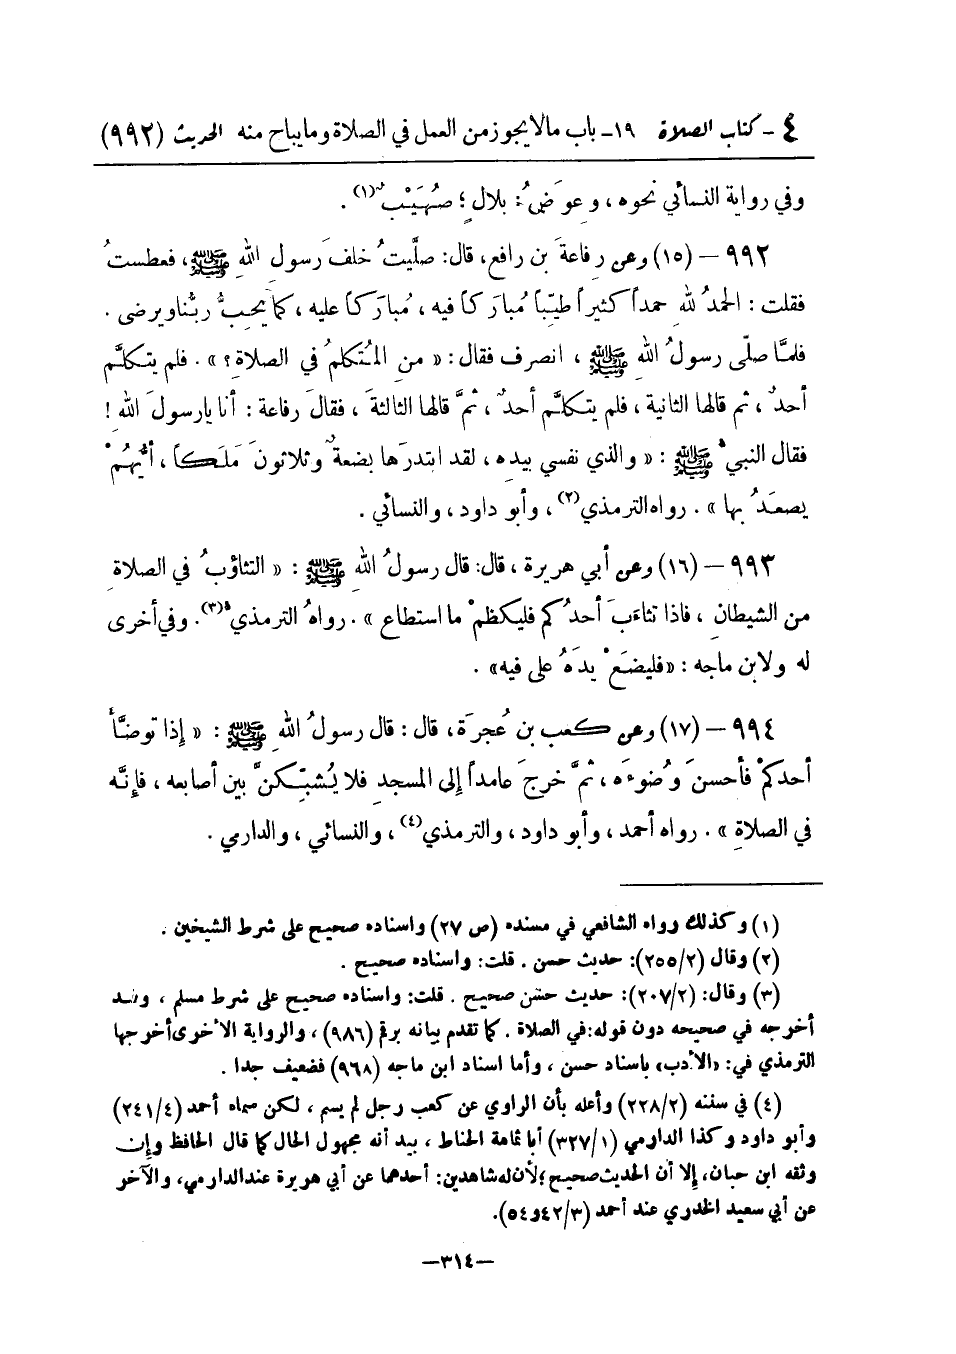 ٤ - كتاب الصلاة ١٩- باب مالا يجوز من العمل في الصلاة وما يباح منه الحديث (٩٩٢)
وفي رواية النسائي نحوه ، وعوضُ : بلالٍ ؛ صُهَيْبٌ(١) .
٩٩٢ – (١٥) وعن رفاعةَ بن رافع، قال: صلَّيتُ خلفَ رسول اللهِ ﷺ، فعطستُ
فقلت : الحمدُ للهِ حمداً كثيراً طيّباً مُباركاً فيه ، مُباركاً عليه ، كما يحبُّ ربُّنا ويرضى .
فلمَّا صلّى رسولُ اللهِ ﷺ ، انصرف فقال : « منِ المُتكلمُ في الصلاةِ ؟ » . فلم يتكلَّم
أحدٌ ، ثم قالها الثانية ، فلم يتكلَّم أحدٌ ، ثمَّ قالها الثالثةَ ، فقالَ رفاعة : أنا يا رسولَ اللهِ !
فقال النبيُّ ﷺ : « والذي نفسي بيده ، لقد ابتدرَها بضعةٌ وثلاثونَ مَلَكاً ، أيُّهُمْ
يصعَدُ بها » . رواه الترمذي(٢) ، وأبو داود ، والنسائي .
٩٩٣ – (١٦) وعن أبي هريرة ، قال: قال رسولُ اللهِ ﷺ : « التثاؤبُ في الصلاةِ
من الشيطانِ ، فاذا تثاءَبَ أحدُكم فليكظمْ ما استطاع » . رواهُ الترمذيُّ(٣). وفي أخرى
له ولابن ماجه : «فليضَعْ يدَهُ على فيه» .
٩٩٤ – (١٧) وعن كعب بن عُجرَة، قال : قال رسولُ اللهِ ﷺ : « إذا توضَّأ
أحدكمْ فأحسنَ وُضوءَه ، ثمَّ خرجَ عامداً إلى المسجدِ فلا يُشبِّكنَّ بين أصابعه ، فإنَّه
في الصلاةِ » . رواه أحمد ، وأبو داود ، والترمذي(٤) ، والنسائي ، والدارمي .
(١) وكذلك رواه الشافعي في مسنده (ص ٢٧) واسناده صحيح على شرط الشيخين .
(٢) وقال (٢٥٥/٢): حديث حسن . قلت: واسناده صحيح .
(٣) وقال: (٢٠٧/٢): حديث حسن صحيح . قلت: واسناده صحيح على شرط مسلم ، وقد
أخرجه في صحيحه دون قوله:في الصلاة . كما تقدم بيانه برقم (٩٨٦) ، والرواية الأخرى أخرجها
الترمذي في: «الأدب» باسناد حسن ، وأما اسناد ابن ماجه (٩٦٨) فضعيف جدا .
(٤) في سننه (٢٢٨/٢) وأعله بأن الراوي عن كعب رجل لم يسم ، لكن سماه أحمد (٢٤١/٤)
وأبو داود وكذا الدارمي (٣٢٧/١) أبا ثمامة الحناط ، بيد أنه مجهول الحال كما قال الحافظ وإن
وثقه ابن حبان، إلا أن الحديث صحيح ؛ لأن له شاهدين: أحدهما عن أبي هريرة عند الدارمي، والآخر
عن أبي سعيد الخدري عند أحمد (٤٢/٣و٥٤).
—٣١٤—